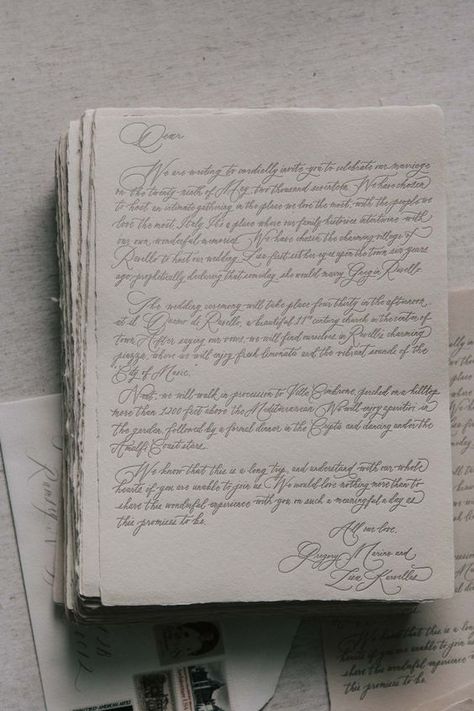 Dear
We are writing to cordially invite you to celebrate our marriage
on the twenty-ninth of May, two thousand seventeen. We have chosen
to host an intimate gathering in the place we love the most, with the people we
love the most. Italy. It's a place where our family histories intertwine with
our own, wonderful memories. We have chosen the charming village of
Ravello to host our wedding. Lisa first set her eyes upon the town six years
ago, prophetically declaring that someday she would marry Greg in Ravello.
The wedding ceremony will take place four thirty in the afternoon,
at il Duomo di Ravello, a beautiful 11th century church in the centre of
town. After saying our vows, we will find ourselves in Ravello's charming
piazza, where we will enjoy fresh limonata and the vibrant sounds of the
"City of Music."
Next, we will walk in procession to Villa Cimbrone, perched on a hilltop
more than 1200 feet above the Mediterranean. We will enjoy aperitivi in
the garden, followed by a formal dinner in the Crypta and dancing under the
Amalfi Coast stars.
We know that this is a long trip, and understand with our whole
hearts if you are unable to join us. We would love nothing more than to
share this wonderful experience with you on such a meaningful a day as
this promises to be.
All our love,
Gregory Marino and
Lisa